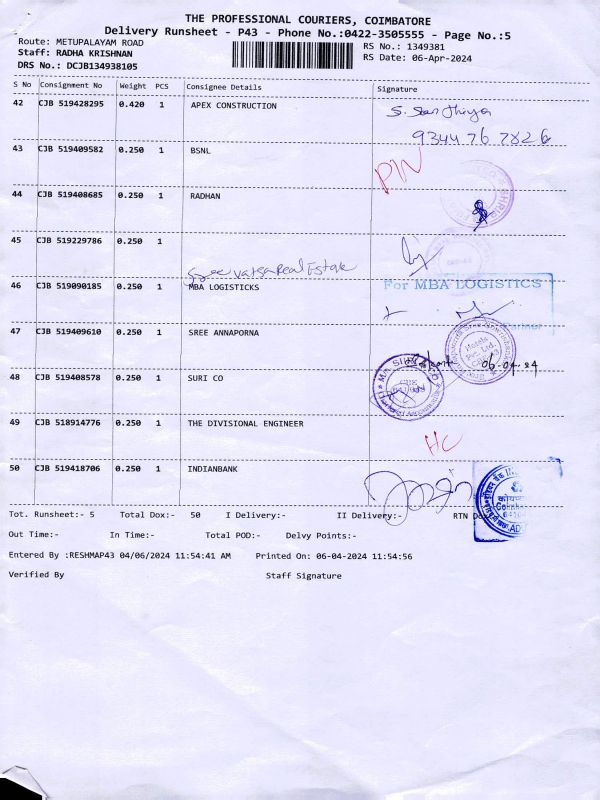 THE PROFESSIONAL COURIERS, COIMBATORE
Delivery Runsheet - P43 - Phone No.:0422-3505555 - Page No.:5
Route: METUPALAYAM ROAD
RS No.: 1349381
Staff: RADHA KRISHNAN
RS Date: 06-Apr-2024
DRS No.: DCJB134938105
S No Consignment No Weight PCS Consignee Details Signature
42 CJB 519428295 0.420 1 APEX CONSTRUCTION
9344 76 7826
43 CJB 519409582 0.250 1 BSNL
44 CJB 519408685 0.250 1 RADHAN
45 CJB 519229786 0.250 1
Sree Vatsa Real Estate
46 CJB 519090185 0.250 1 MBA LOGISTICKS
For MBA LOGISTICS
Partner
47 CJB 519409610 0.250 1 SREE ANNAPORNA
06-04-24
48 CJB 519408578 0.250 1 SURI CO
49 CJB 518914776 0.250 1 THE DIVISIONAL ENGINEER
HC
50 CJB 519418706 0.250 1 INDIANBANK
Tot. Runsheet:- 5 Total Dox:- 50 I Delivery:- II Delivery:- RTN
Out Time:- In Time:- Total POD:- Delvy Points:-
Entered By :RESHMAP43 04/06/2024 11:54:41 AM Printed On: 06-04-2024 11:54:56
Verified By Staff Signature